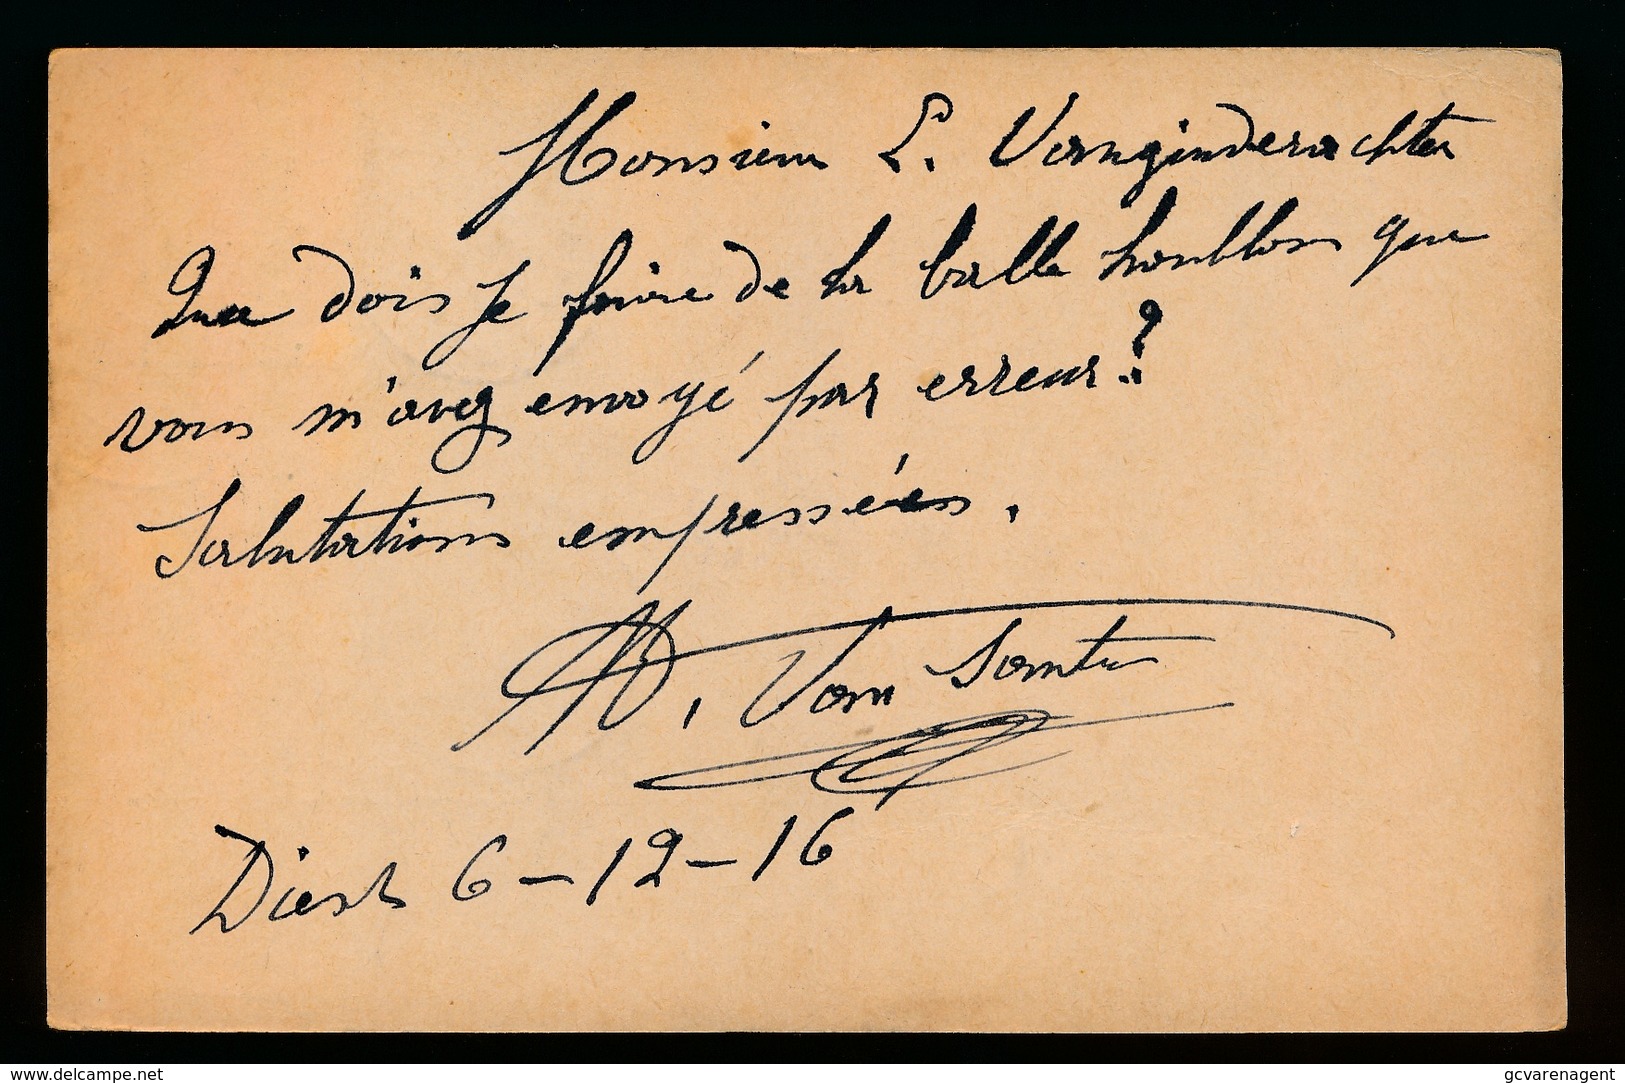 Monsieur L. Vanginderachter
Que dois je faire de la balle houblon que
vous m'avez envoyé par erreur ?
Salutations empressées.
Van
Diest 6-12-16
www.delcampe.net
gcvarenagent